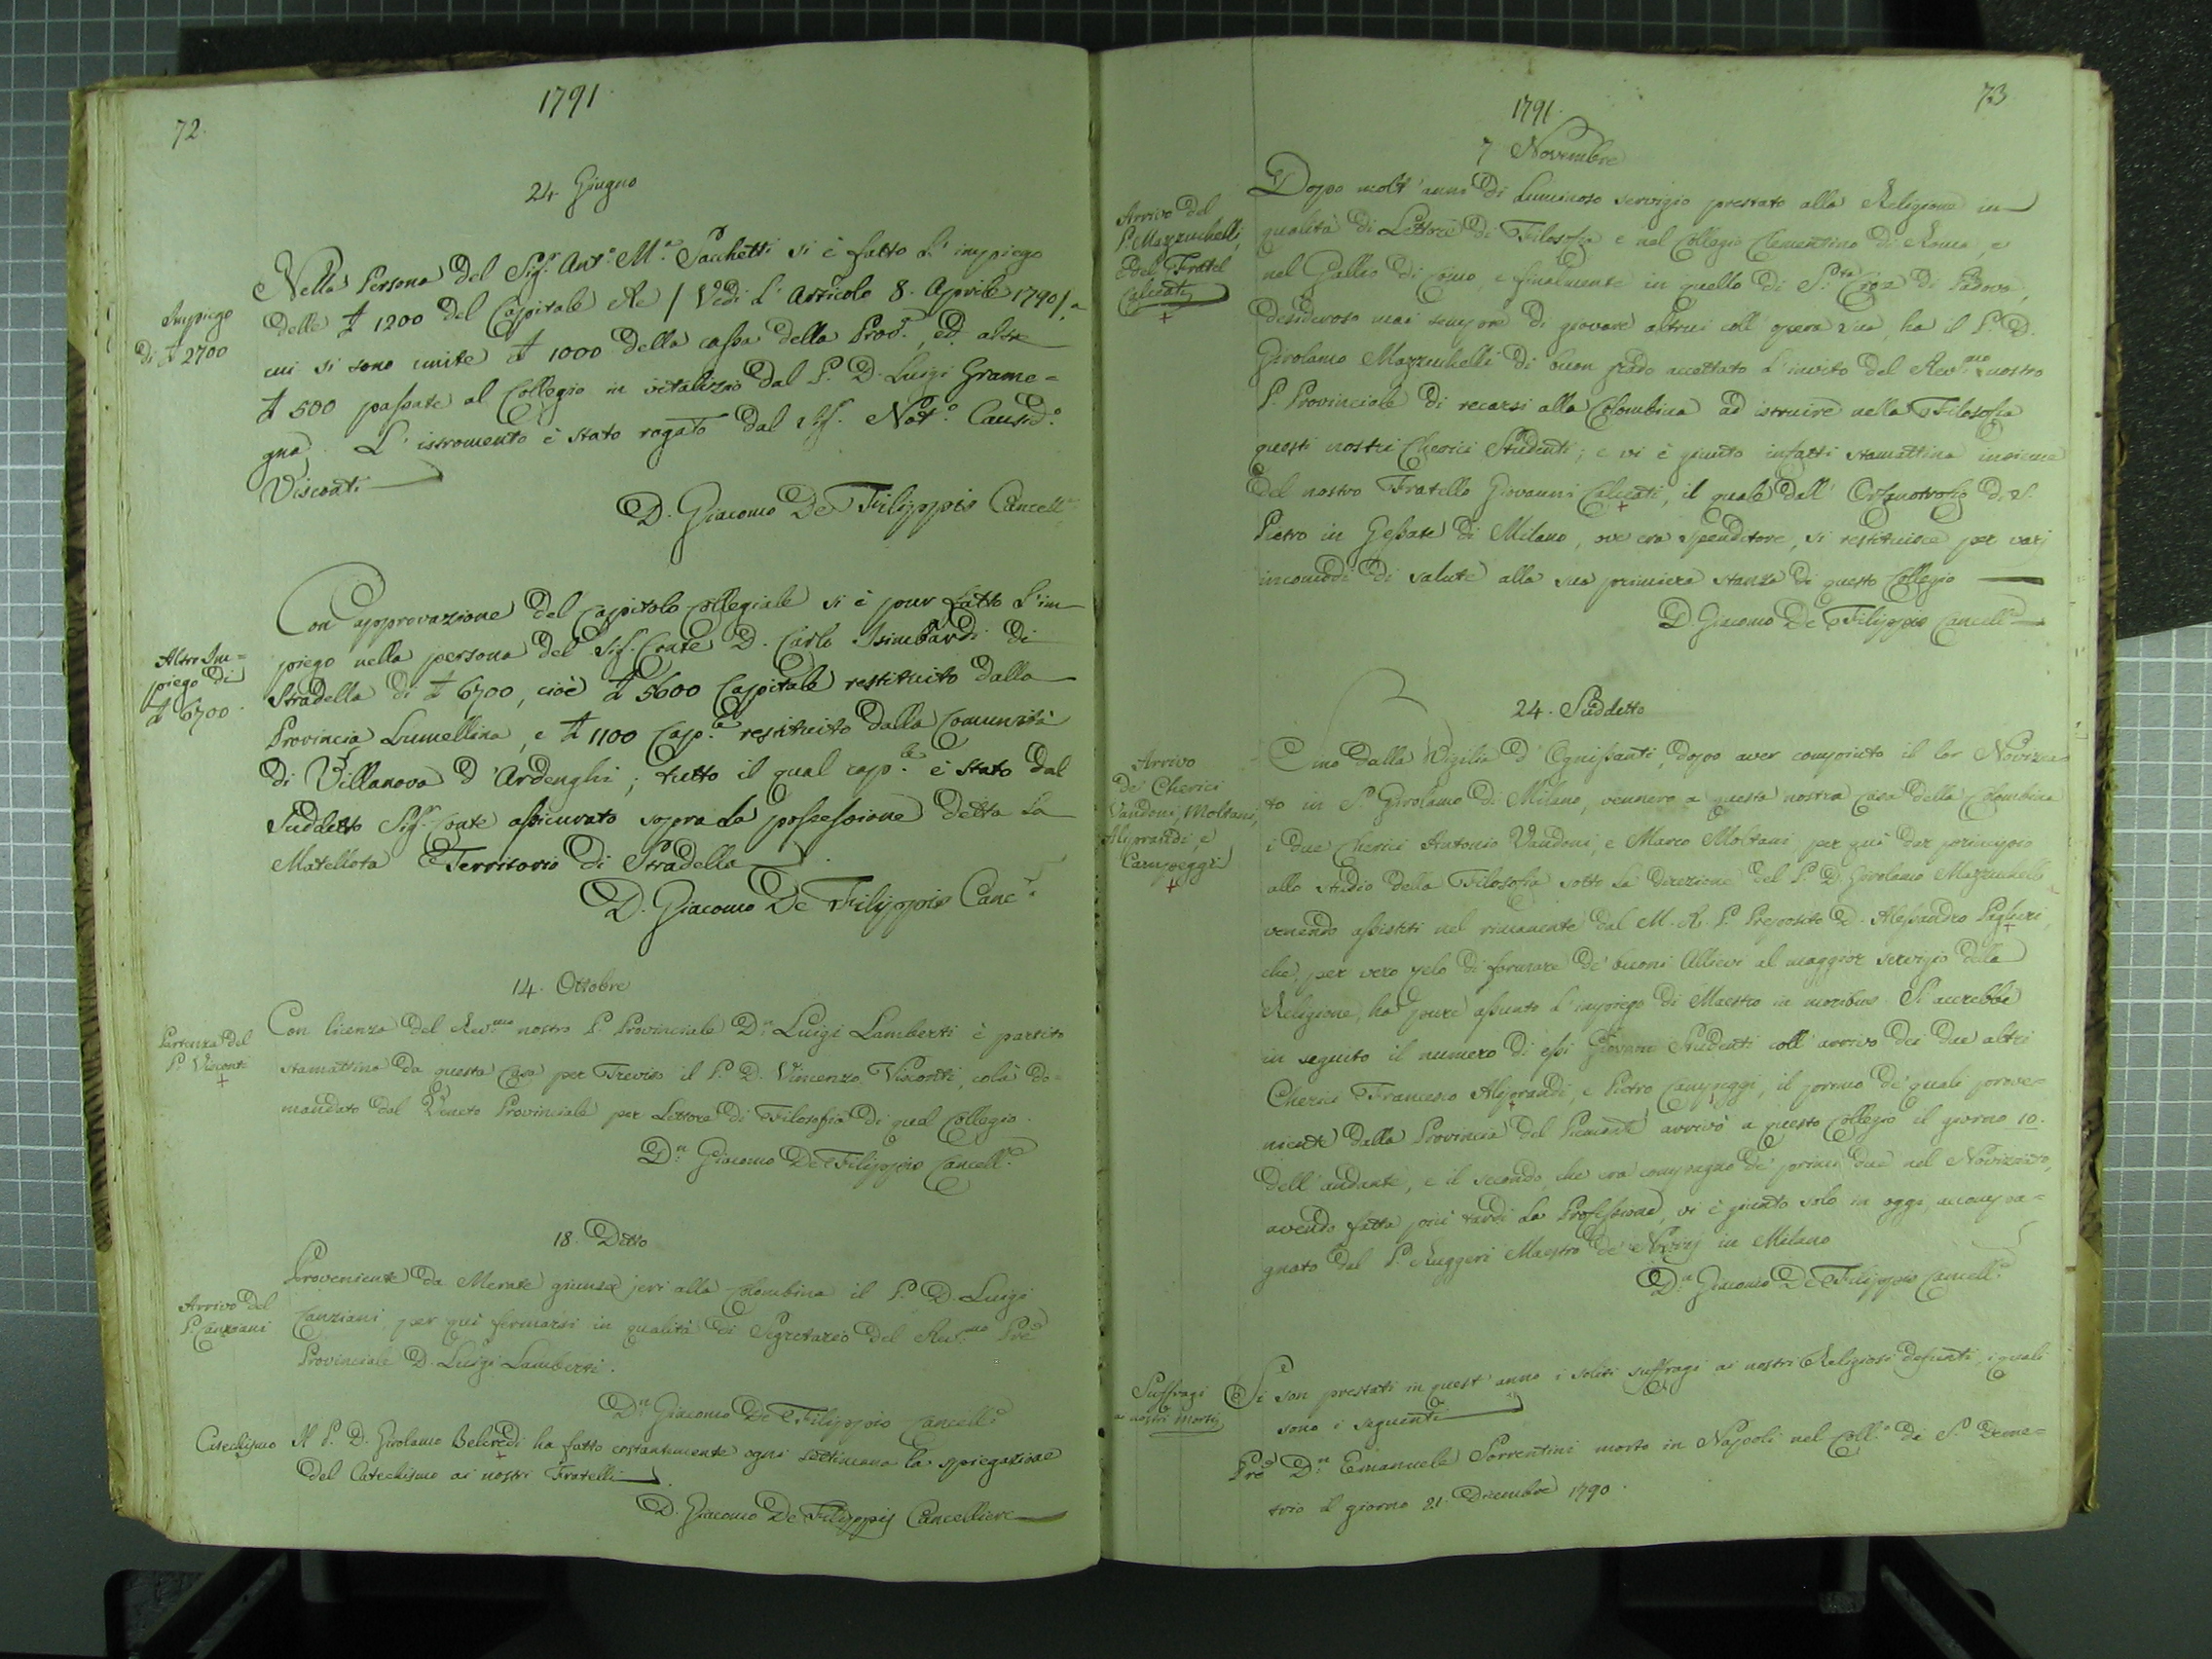 72.
1791.
24. Giugno
Impiego
di £ 2700
Nella Persona del Sig.r Ant.o M.a Sachetti si è fatto l'impiego
delle £ 1200 del Capitale Re / Vedi l'Articolo 8. Aprile 1790/, a
cui si sono unite £ 1000 della cassa della Prov.a, ed altre
£ 500 passate al Collegio in vitalizio dal P. D. Luigi Grame=
gna. L'istromento è stato rogato dal Sig. Not.o Causid.o
Visconti
D. Giacomo De Filippis Cancell.e
Altro Im=
piego di
£ 6700.
Con approvazione del Capitolo Collegiale si è pur fatto l'im
piego nella persona del Sig. Conte D. Carlo Isimbardi di
Stradella di £ 6700, cioè £ 5600 Capitale restituito dalla
Provincia Lumellina, e £ 1100 Cap.le restituito dalla Comunità
di Villanova d'Ardenghi; tutto il qual cap.le è stato dal
Suddetto Sig.r Conte assicurato sopra la possessione detta la
Matellota Territorio di Stradella.
D. Giacomo De Filippis Canc.e
14. Ottobre
Partenza del
P. Visconti
Con licenza del Rev.mo nostro P. Provinciale D.n Luigi Lamberti è partito
stamattina da questa Casa per Treviso il P. D. Vincenzo Visconti, colà do=
mandato dal Veneto Provinciale per Lettore di Filosofia di qual Collegio.
D.n Giacomo De Filippis Cancell.e
18. Ditto
Arrivo del
P. Canziani
Proveniente da Merate giunse jeri alla Colombina il P. D. Luigi
Canziani, per quì fermarsi in qualità di Segretario del Rev.mo Pre
Provinciale D. Luigi Lamberti.
D.n Giacomo De Filippis Cancell.e
Catechismo
Il P. D. Girolamo Belcredi ha fatto costantemente ogni settimana la spiegazione
del Catechismo ai nostri Fratelli.
D. Giacomo De Filippis Cancelliere
73
1791.
7 Novembre
Arrivo del
P. Mazzuchelli,
e del Fratel
Calcati
Dopo molt'anni di luminoso servigio prestato alla Religione in
qualità di Lettore di Filosofia e nel Collegio Clementino di Roma, e
nel Gallio di Como, e finalmente in quello di S.ta Croce di Padova,
desideroso mai sempre di giovare altrui coll'opera sua, ha il P. D.
Girolamo Mazzuchelli di buon grado accettato l'invito del Rev.mo nostro
P. Provinciale di recarsi alla Colombina ad istruire nella Filosofia
questi nostri Cherici Studenti; e vi è giunto infatti stamattina insieme
del nostro Fratello Giovanni Calcati, il quale dall'Orfanotrofio di S.
Pietro in Gessate di Milano, ove era Spenditore, si restituisce per varj
incomodi di salute alla sua primiera stanza di questo Collegio
D. Giacomo De Filippis Cancell.e
24. Suddetto
Arrivo
de' Cherici
Vandoni, Moltani,
Aliprandi, e
Campeggi
Sino dalla Vigilia d'Ognissanti, dopo aver compiuto il lor Novizia
to in S. Girolamo di Milano, vennero a questa nostra Casa della Colombina
i due Cherici Antonio Vandoni, e Marco Moltani, per quì dar principio
allo studio della Filosofia sotto la direzione del P. D. Girolamo Mazzuchelli
venendo assistiti nel rimanente dal M. R. P. Preposito D. Alessandro Pagliari,
che, per vero zelo di formare de' buoni Allievi al maggior servigio della
Religione, ha pure assunto l'impiego di Maestro in moribus. Si accrebbe
in seguito il numero di essi Giovani Studenti coll'arrivo dei due altri
Cherici Francesco Aliprandi, e Pietro Campeggi, il primo de' quali prove=
niente dalla Provincia del Piemonte arrivò a questo Collegio il giorno 10.
dell'andante, e il secondo, che era compagno de' primi due nel Noviziato,
avendo fatta più tardi la Professione, vi è giunto solo in oggi, accompa=
gnato dal P. Ruggeri Maestro de' Novizj in Milano
D.n Giacomo De Filippis Cancell.e
Suffragi
a nostri morti
Si son prestati in quest'anno i soliti suffragi ai nostri Religiosi defunti, i quali
sono i seguenti
Pre D.n Emanuele Sorrentini morto in Napoli nel Coll.o di S. Deme=
trio il giorno 21. Dicembre 1790.